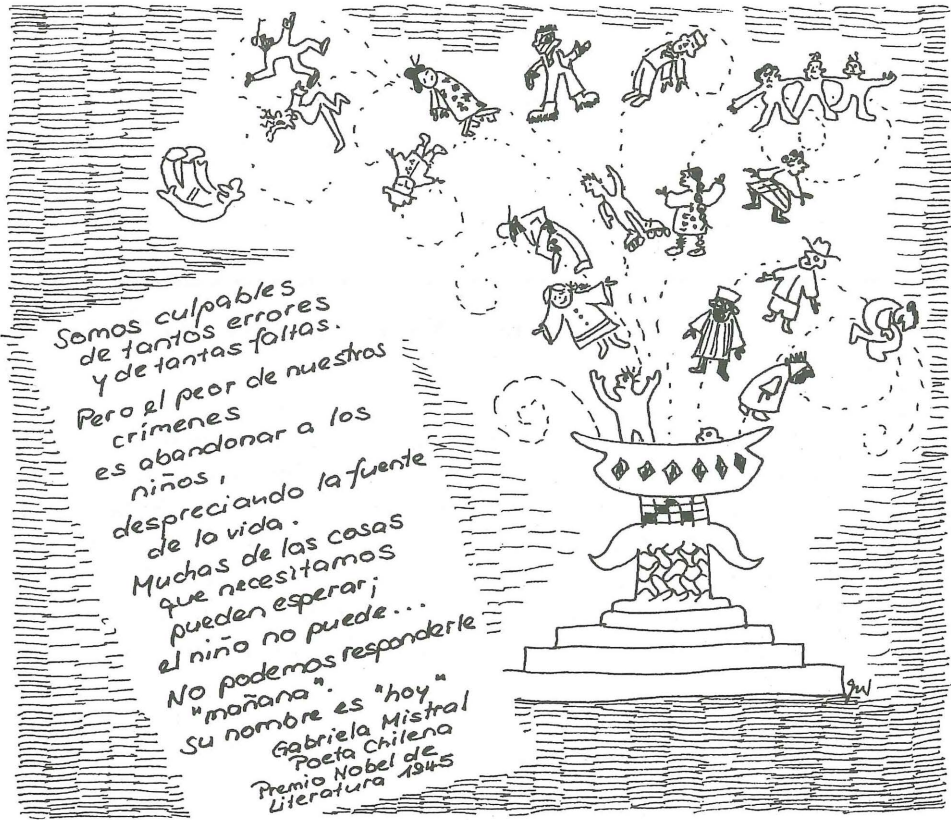 Somos culpables
de tantos errores
y de tantas faltas.
Pero el peor de nuestros
crímenes
es abandonar a los
niños,
despreciando la fuente
de la vida.
Muchas de las cosas
que necesitamos
pueden esperar;
el niño no puede...
No podemos responderle
"mañana".
Su nombre es "hoy"
Gabriela Mistral
Poeta Chilena
Premio Nobel de
Literatura 1945